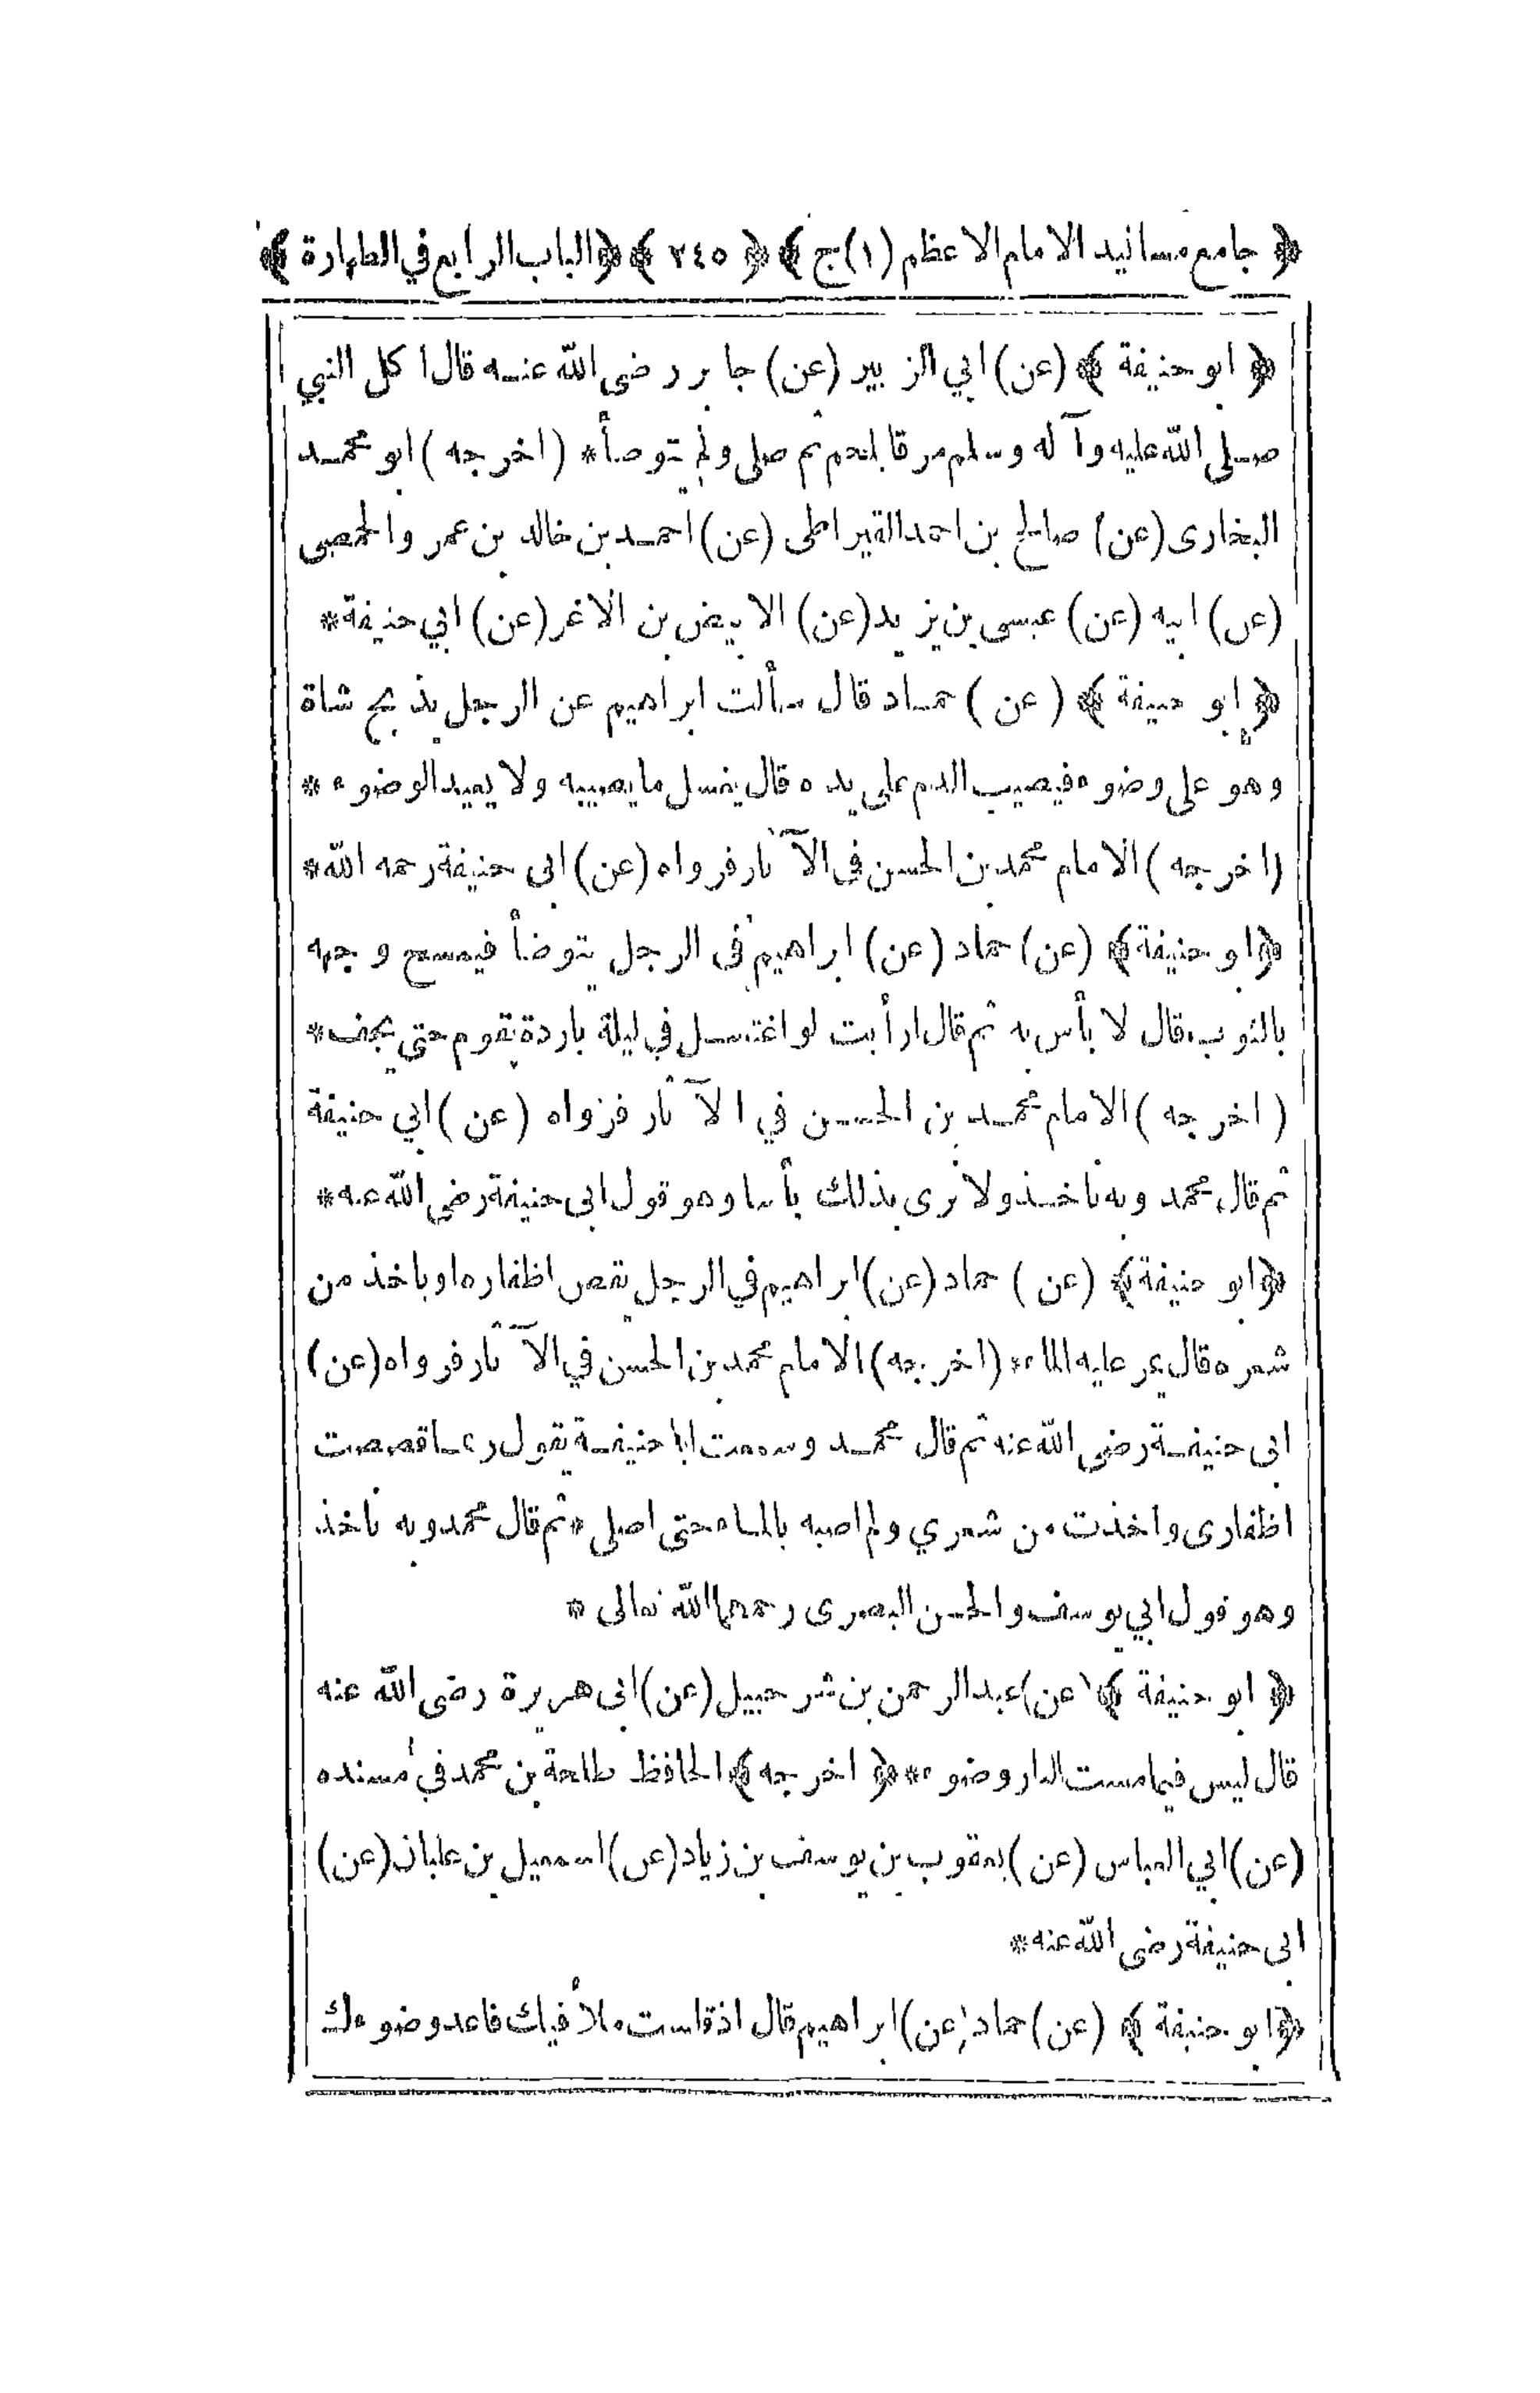 ﴿ جامع مسانيد الامام الاعظم (١) ج ﴾ ﴿ ٢٤٥ ﴾ ﴿ الباب الرابع في الطهارة ﴾
﴿ ابو حنيفة ﴾ (عن) ابي الزبير (عن) جابر رضى الله عنه قال اكل النبي
صلى الله عليه وآله وسلم مرقا بلحم ثم صلى ولم يتوضأ * (اخرجه) ابو محمد
البخارى (عن) صالح بن احمد القيراطى (عن) احمد بن خالد بن عمر والحمصى
(عن) ابيه (عن) عيسى بن يزيد (عن) الابيض بن الاغر (عن) ابي حنيفة *
﴿ ابو حنيفة ﴾ (عن) حماد قال سألت ابراهيم عن الرجل يذبح شاة
وهو على وضوء فيصيب الدم على يده قال يغسل ما يصيبه ولا يعيد الوضوء *
(اخرجه) الامام محمد بن الحسن في الآثار فرواه (عن) ابى حنيفة رحمه الله *
﴿ ابو حنيفة ﴾ (عن) حماد (عن) ابراهيم في الرجل يتوضأ فيمسح وجهه
بالثوب قال لا بأس به ثم قال ارأيت لو اغتسل في ليلة باردة يقوم حتى يجف *
(اخرجه) الامام محمد بن الحسن في الآثار فرواه (عن) ابي حنيفة
ثم قال محمد وبه ناخذ ولا نرى بذلك بأسا وهو قول ابى حنيفة رضى الله عنه *
﴿ ابو حنيفة ﴾ (عن) حماد (عن) ابراهيم في الرجل يقص اظفاره او ياخذ من
شعره قال يمر عليه الماء * (اخرجه) الامام محمد بن الحسن في الآثار فرواه (عن)
ابى حنيفة رضى الله عنه ثم قال محمد وسمعت ابا حنيفة يقول ربما قصصت
اظفارى واخذت من شعري ولم اصبه بالماء حتى اصلى * ثم قال محمد وبه ناخذ
وهو قول ابي يوسف والحسن البصرى رحمهما الله تعالى *
﴿ ابو حنيفة ﴾ (عن) عبد الرحمن بن شرحبيل (عن) ابى هريرة رضى الله عنه
قال ليس فيما مست النار وضوء * ﴿ اخرجه ﴾ الحافظ طلحة بن محمد في مسنده
(عن) ابي العباس (عن) يعقوب بن يوسف بن زياد (عن) اسمعيل بن علبان (عن)
ابى حنيفة رضى الله عنه *
﴿ ابو حنيفة ﴾ (عن) حماد (عن) ابراهيم قال اذ قاست ملأ فيك فاعد وضوءك